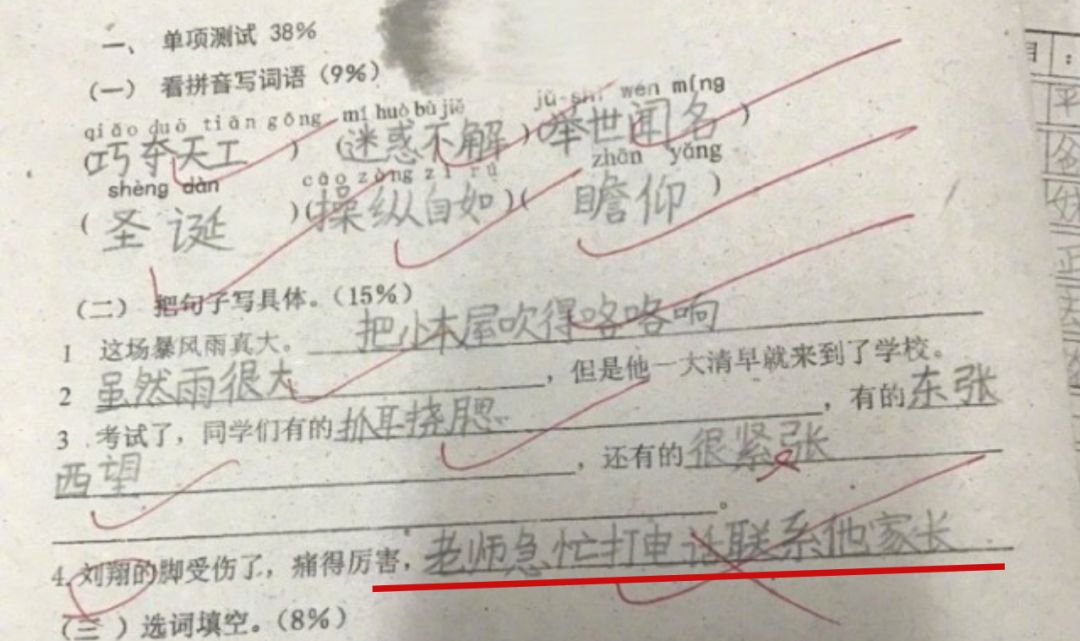 一、单项测试 38%
（一）看拼音写词语（9%）
qiǎo duó tiān gōng mí huò bù jiě jǔ shì wén míng
（巧夺天工）（迷惑不解）（举世闻名）
shèng dàn cāo zòng zì rú zhān yǎng
（圣诞）（操纵自如）（瞻仰）
（二）把句子写具体。（15%）
1 这场暴风雨真大。把小木屋吹得咯咯响
2 虽然雨很大，但是他一大清早就来到了学校。
3 考试了，同学们有的抓耳挠腮，有的东张
西望，还有的很紧张
。
4.刘翔的脚受伤了，痛得厉害，老师急忙打电话联系他家长
（三）选词填空。（8%）